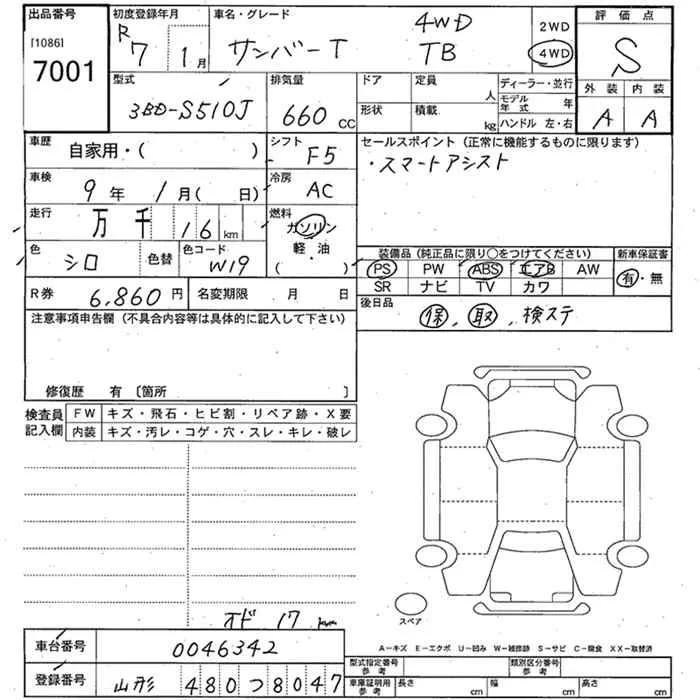 出品番号
[1086]
7001
初度登録年月
R 7 1月
車名・グレード
サンバーT
4WD
TB
2WD
4WD
評価点
S
外装 内装
A A
型式
3BD-S510J
排気量
660 cc
ドア 定員 人
形状 積載 kg
ディーラー・並行
モデル年式 年
ハンドル 左・右
車歴
自家用・( )
シフト
F5
車検
9年 1月( 日)
冷房
AC
走行
万 千 16 km
燃料
ガソリン
軽・油
( )
色
シロ
色替
色コード
W19
セールスポイント(正常に機能するものに限ります)
・スマートアシスト
装備品(純正品に限り○をつけてください)
PS PW ABS エアB AW
SR ナビ TV カワ
新車保証書
有・無
R券
6,860円
名変期限 月 日
後日品
保、取、検ステ
注意事項申告欄(不具合内容等は具体的に記入して下さい)
修復歴 有〔箇所 〕
検査員記入欄
FW キズ・飛石・ヒビ割・リペア跡・X要
内装 キズ・汚レ・コゲ・穴・スレ・キレ・破レ
スペア
オド 17 km
車台番号
0046342
A−キズ E−エクボ U−凹み W−補修跡 S−サビ C−腐食 XX−取替済
登録番号
山形 480つ8047
型式指定番号 参考
類別区分番号 参考
車庫証明用 参考
長さ cm
幅 cm
高さ cm